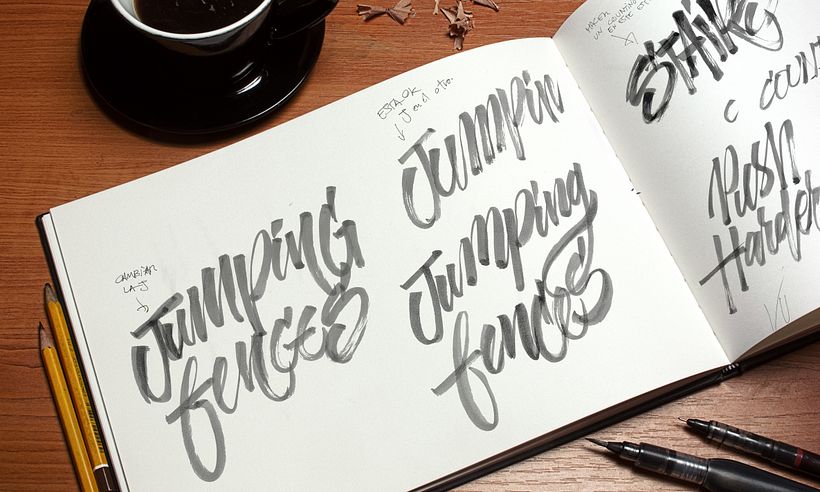 CAMBIAR
LA J
JumpinG
fences
ESTA OK
J en el otro.
Jumpin
Jumping
fences
HACER
UN COUNTING
EN ESTE ESTILO
C COUNT
Push
Harder